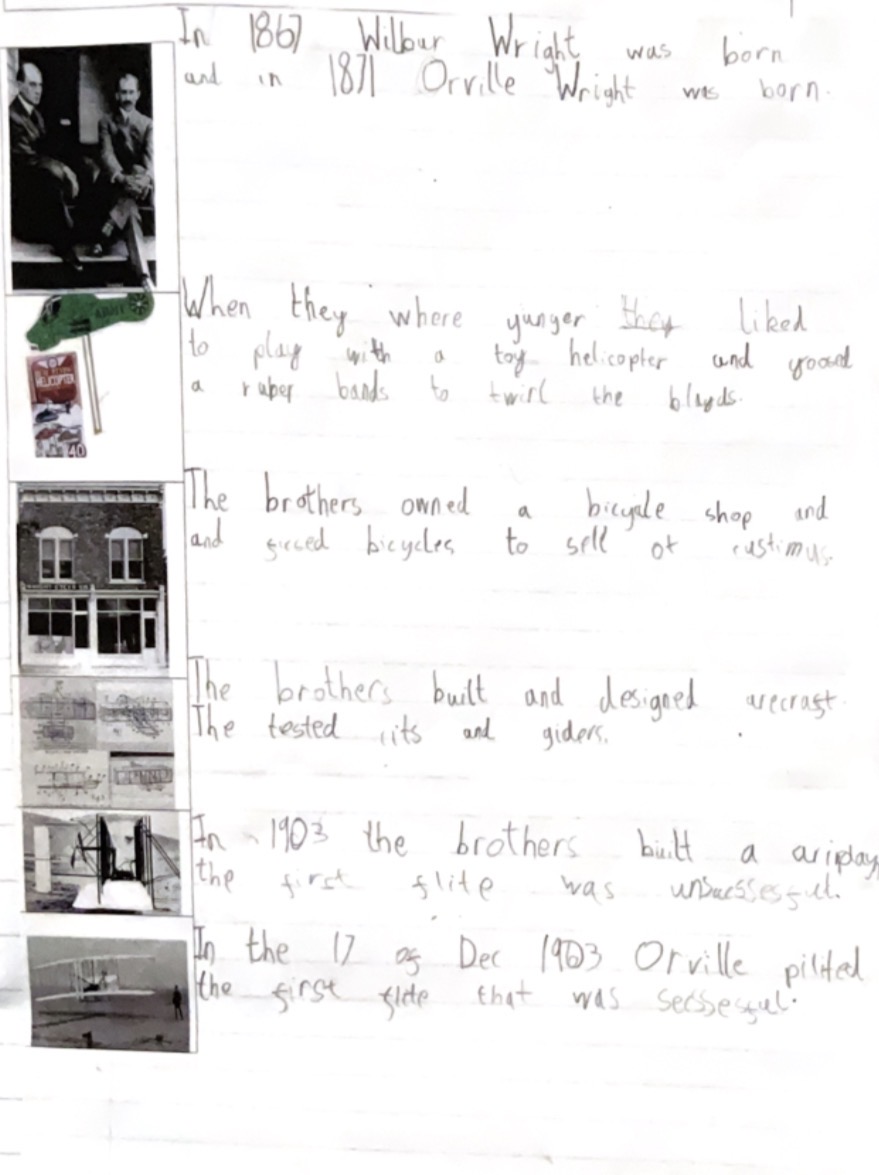 In 1867 Wilbur Wright was born
and in 1871 Orville Wright was born.
When they where yunger they liked
to play with a toy helicopter and yoosd
a ruber bands to twirl the blayds.
HELICOPTER
40
The brothers owned a bicycle shop and
and ficced bicycles to sell ot custimus.
The brothers built and designed arecraft.
The tested cits and giders.
In 1903 the brothers built a ariplay
the first flite was unsucssesful.
In the 17 of Dec 1903 Orville pilited
the first flite that was secssesful.